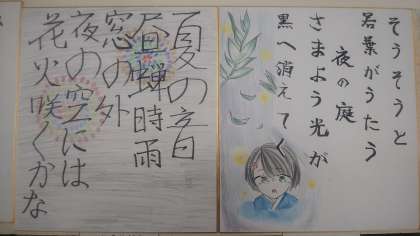 そうそうと
若葉がうたう
夜の庭
さまよう光が
黒へ消えてく
夏の音
昼蝉時雨
窓の外
夜の空には
花火咲くかな